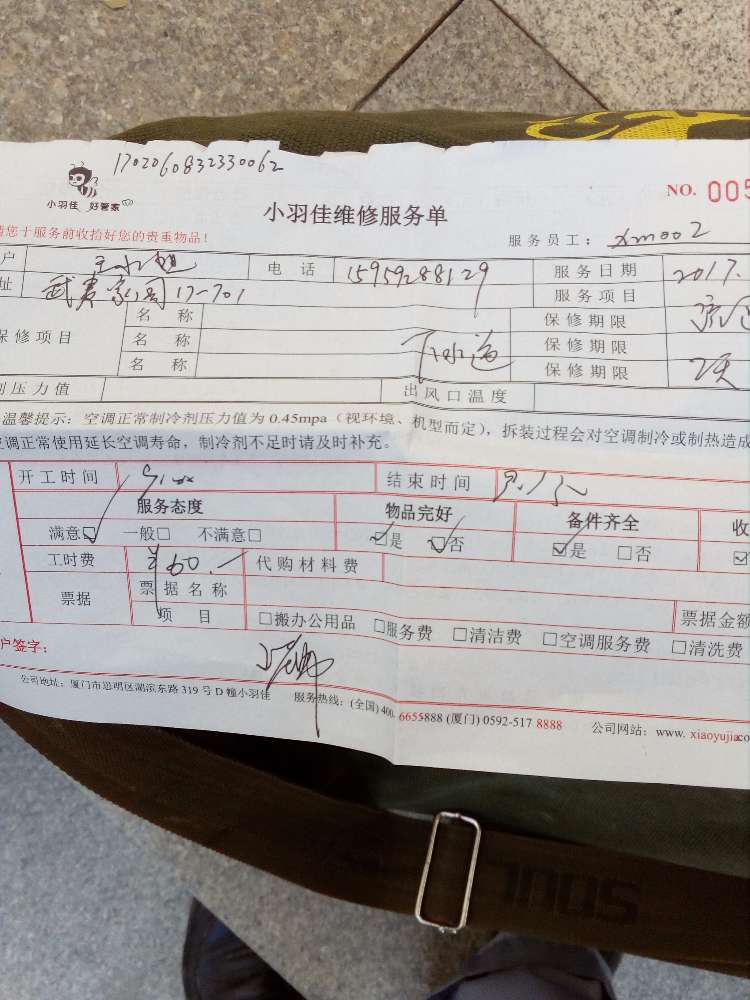 1702060832330062
小羽佳 好管家
NO. 005
小羽佳维修服务单
请您于服务前收拾好您的贵重物品！
服务员工：xm002
户 电话 15959288129 服务日期 2017.
址 17-701 服务项目
保修项目 名称 保修期限
名称 下水道 保修期限
名称 保修期限 2天
剂压力值 出风口温度
温馨提示：空调正常制冷剂压力值为 0.45mpa（视环境、机型而定），拆装过程会对空调制冷或制热造成
空调正常使用延长空调寿命，制冷剂不足时请及时补充。
开工时间 结束时间
服务态度 物品完好 备件齐全 收
满意☑ 一般□ 不满意□ ☑是 ☑否 ☑是 □否
工时费 ¥60.— 代购材料费
票据 票据名称 票据金额
项目 □搬办公用品 □服务费 □清洁费 □空调服务费 □清洗费
户签字：
公司地址：厦门市思明区湖滨东路 319 号 D 幢小羽佳 服务热线：(全国) 400. 6655888 (厦门) 0592-517 8888 公司网站：www. xiaoyujia.co